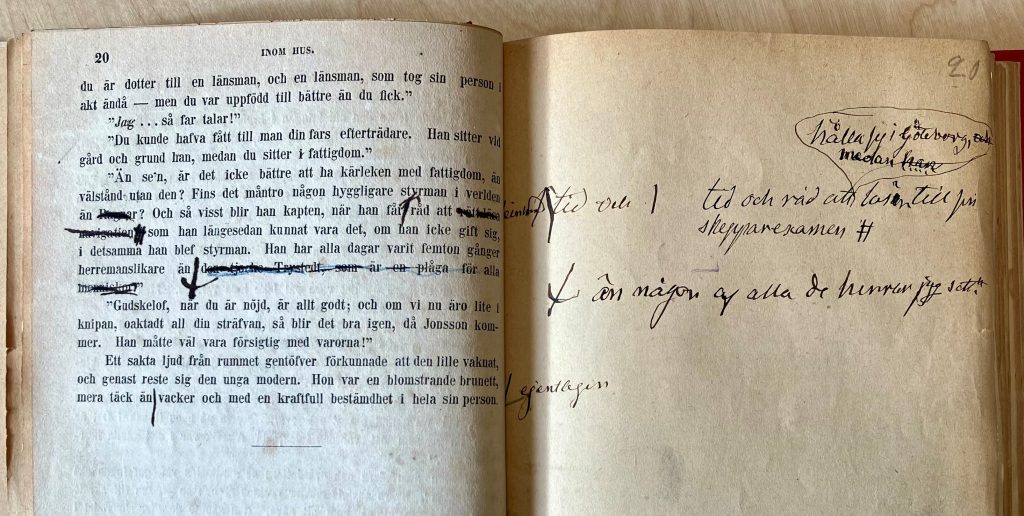 20
INOM HUS.
du är dotter till en länsman, och en länsman, som tog sin person i
akt ändå — men du var uppfödd till bättre än du fick."
"Jag ... så far talar!"
"Du kunde hafva fått till man din fars efterträdare. Han sitter vid
gård och grund han, medan du sitter i fattigdom."
"Än se'n, är det icke bättre att ha kärleken med fattigdom, än
välstånd utan den? Fins det måntro någon hyggligare styrman i verlden
än Ragnar? Och så visst blir han kapten, när han får råd att
navigation, som han längesedan kunnat vara det, om han icke gift sig,
i detsamma han blef styrman. Han har alla dagar varit femton gånger
herremanslikare än den tjocke Trystedt, som är en plåga för alla
menniskor."
"Gudskelof, når du är nöjd, är allt godt; och om vi nu äro lite i
knipan, oaktadt all din sträfvan, så blir det bra igen, då Jonsson kom-
mer. Han måtte väl vara försigtig med varorna!"
Ett sakta ljud från rummet gentöfver förkunnade att den lille vaknat,
och genast reste sig den unga modern. Hon var en blomstrande brunett,
mera täck än vacker och med en kraftfull bestämdhet i hela sin person.
20
hålla sj i Göteborg,
medan han
tid och
tid och råd att läsa till sin
skepparexamen #
än någon af alla de herrar jag sett."
egentligen